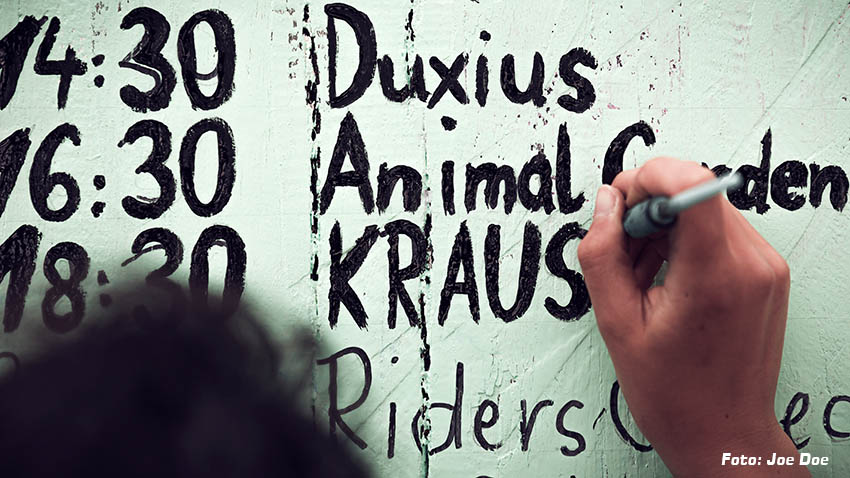 14:30 Duxius
16:30 Animal Garden
18:30 KRAUS
Riders
Foto: Joe Doe